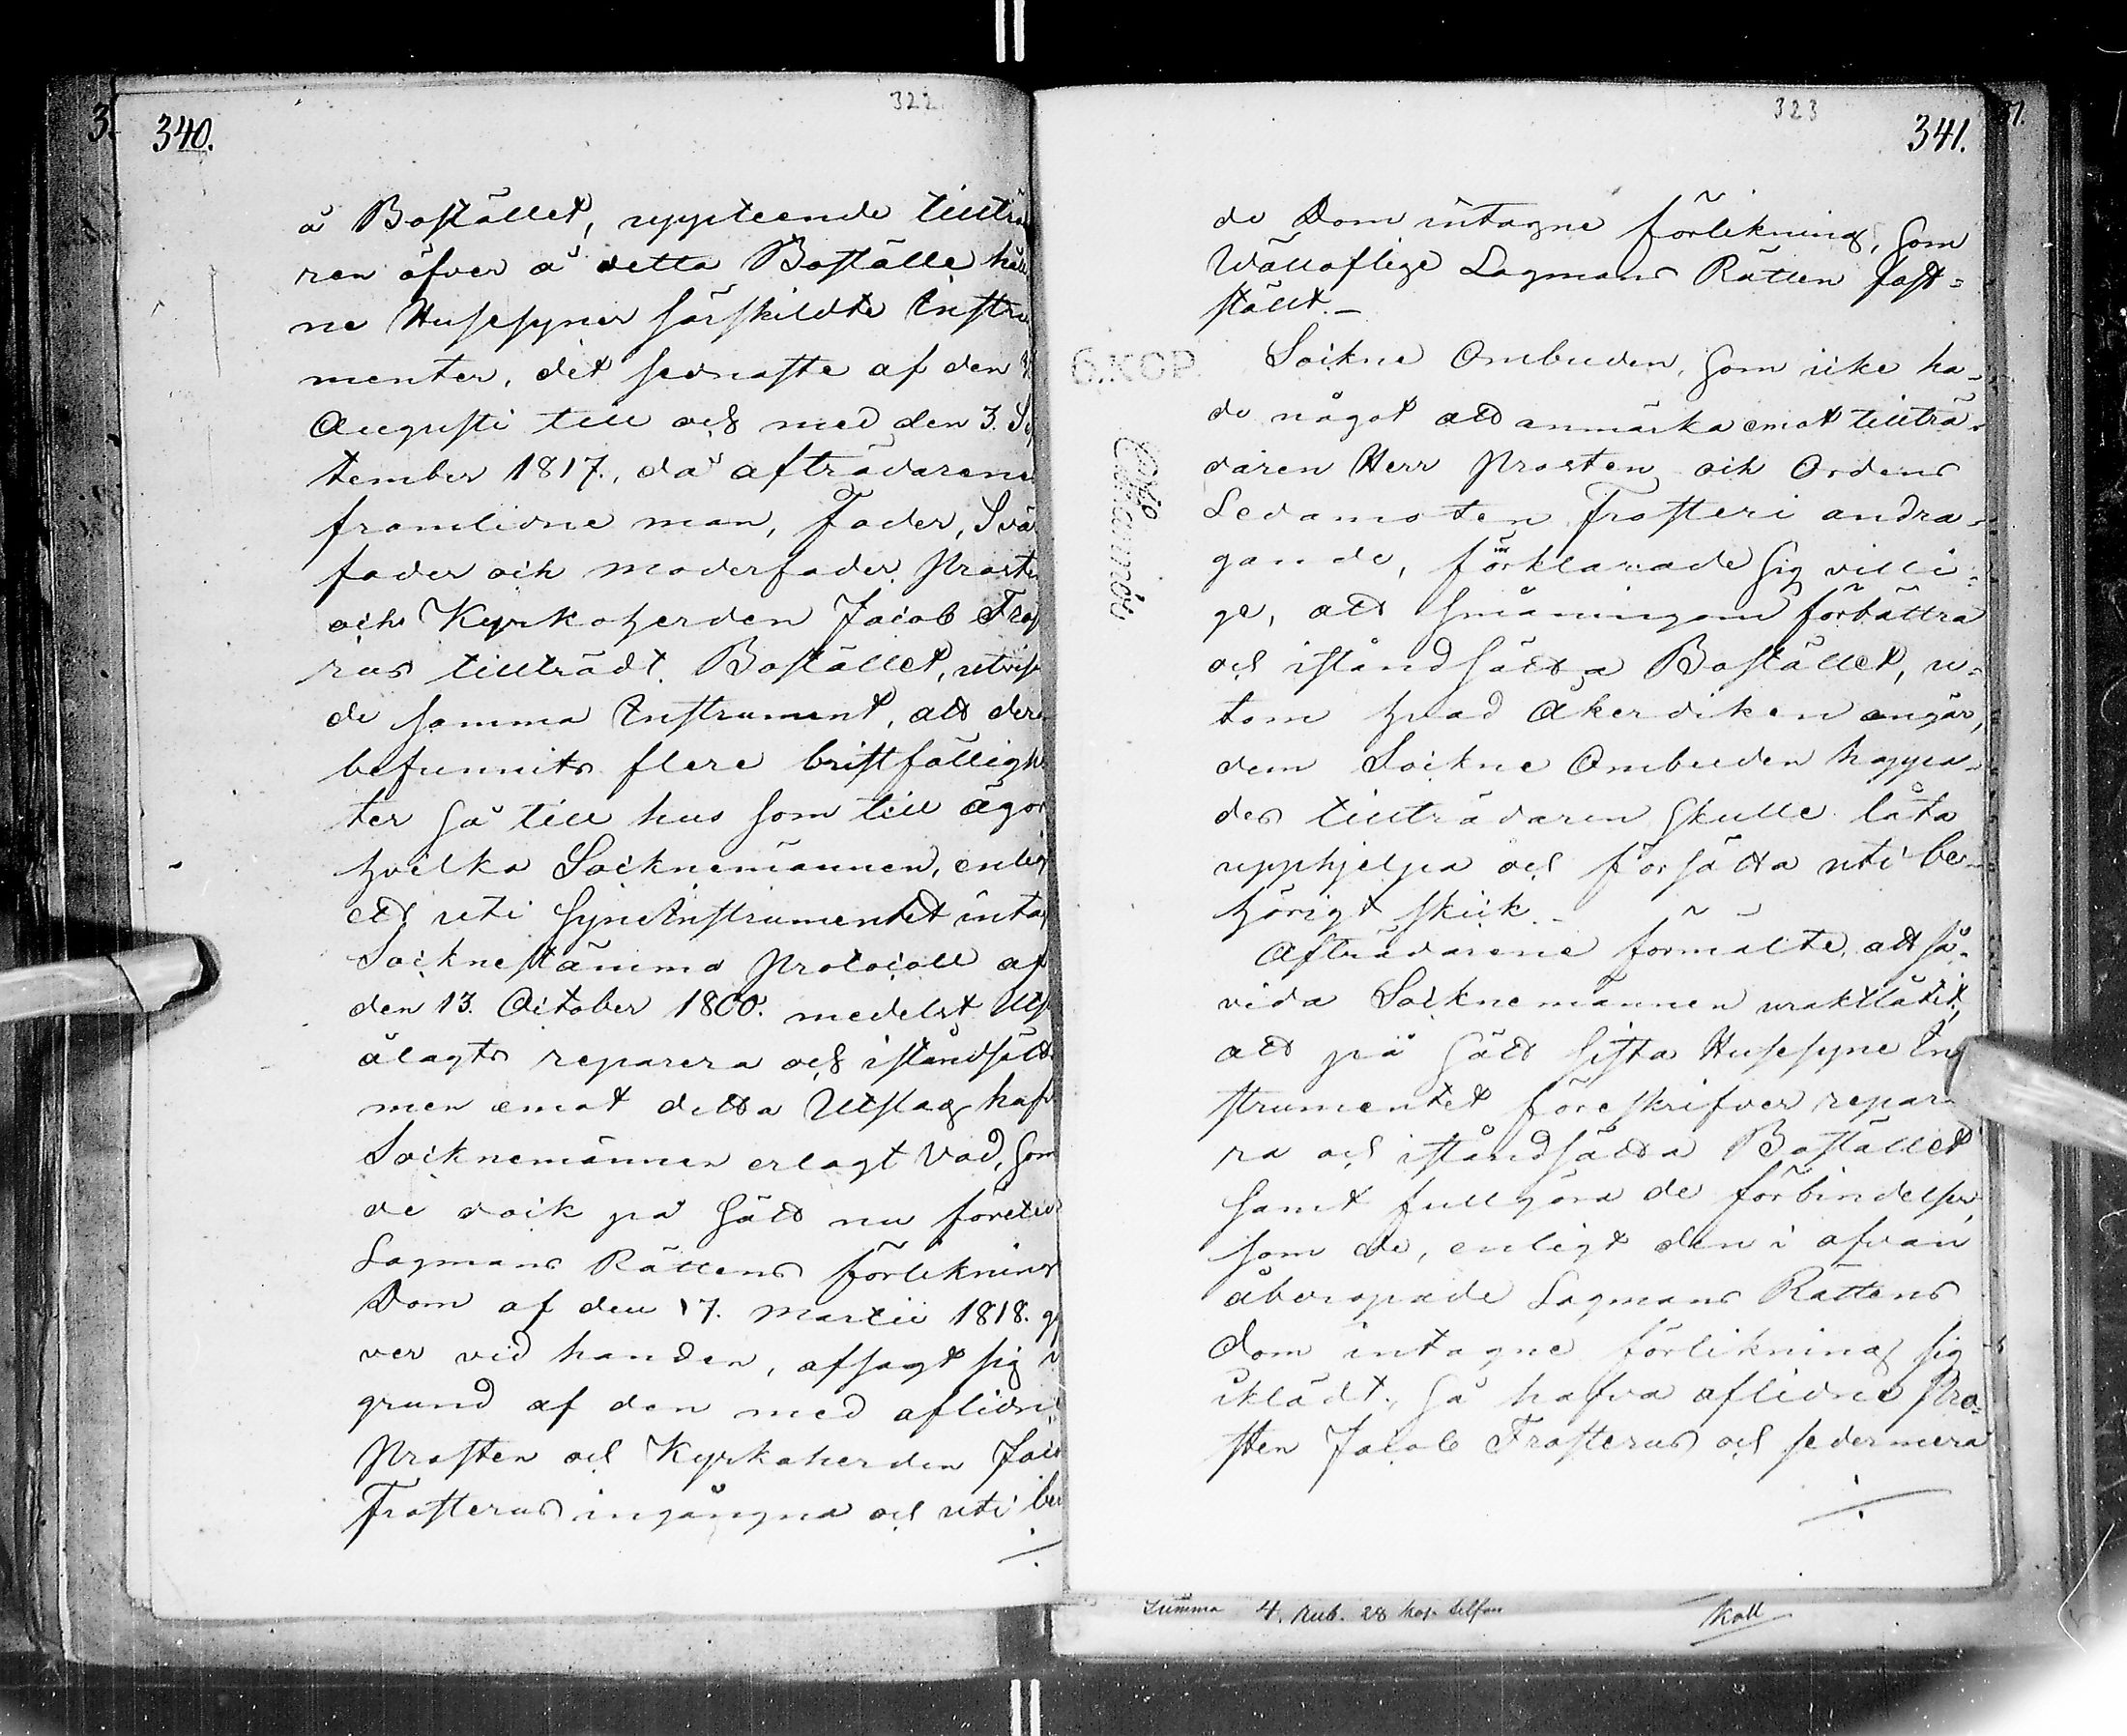 322
340.
å Bostället, uppteende tillträ
ren öfver å detta Boställe håll
ne Husesyner särskildte Instru
menter, det sednaste af den
Augusti till och med den 3. Se
tember 1817., då afträdarene
framlidne man, Fader, Svä
fader och moderfader Proste
och Kyrkoherden Jacob Fro
rus tillträdt Boställlet, utvis
de samma Instrument, att der
befunnits flere bristfälligh
ter så till hus som till ägor
hvilka Socknemännen, enlig
ett uti Syneinstrumentet intag
Sockneståmma Protocoll af
den 13. October 1800. medelst Uts
ålagts reparera och iståndsätta
men emot detta Utslag haf
Socknemännen erlagt Vad, som
de dock på sätt nu företed
Lagmans Rättens förliknings
Dom af den 17. Martii 1818. gif
ver vid handen, afsagt sig
grund af den med aflidne
Prosten och Kyrkoherden Jaco
Frosterus ingångna och uti be
323
341.
de Dom intagne förlikning, som
Wälloflige Lagmans Rätten fast-
stält.-
6.KOP.
Sockne Ombuden, som icke ha-
de något att anmärka emot tillträ-
daren Herr Prosten och Ordens
Ledamoten Frosteri andra-
gande, förklarade sig villi-
ge, att småningom förbättra
och iståndsätta Bostället, u-
tom hvad Åkerdiken angår,
dem Sockne Ombuden hoppa-
des tillträdaren skulle låta
upphjelpa och försätta uti be-
hörigt skick.-
Afträdarene formälte, att så-
vida Socknemännen uraktlåtit,
att på sätt sista Husesyne In
strumentet föreskrifver repare
ra och iståndsätta Bostället
samt fullgöra de förbindelser,
som de, enligt den i ofvan
åberopade Lagmans Rättens
Dom intagne förlikning sig
iklädt, så hafva aflidne Pro-
sten Jacob Frosterus och sedermera
Summa 4. Rub. 28 kop. silfver